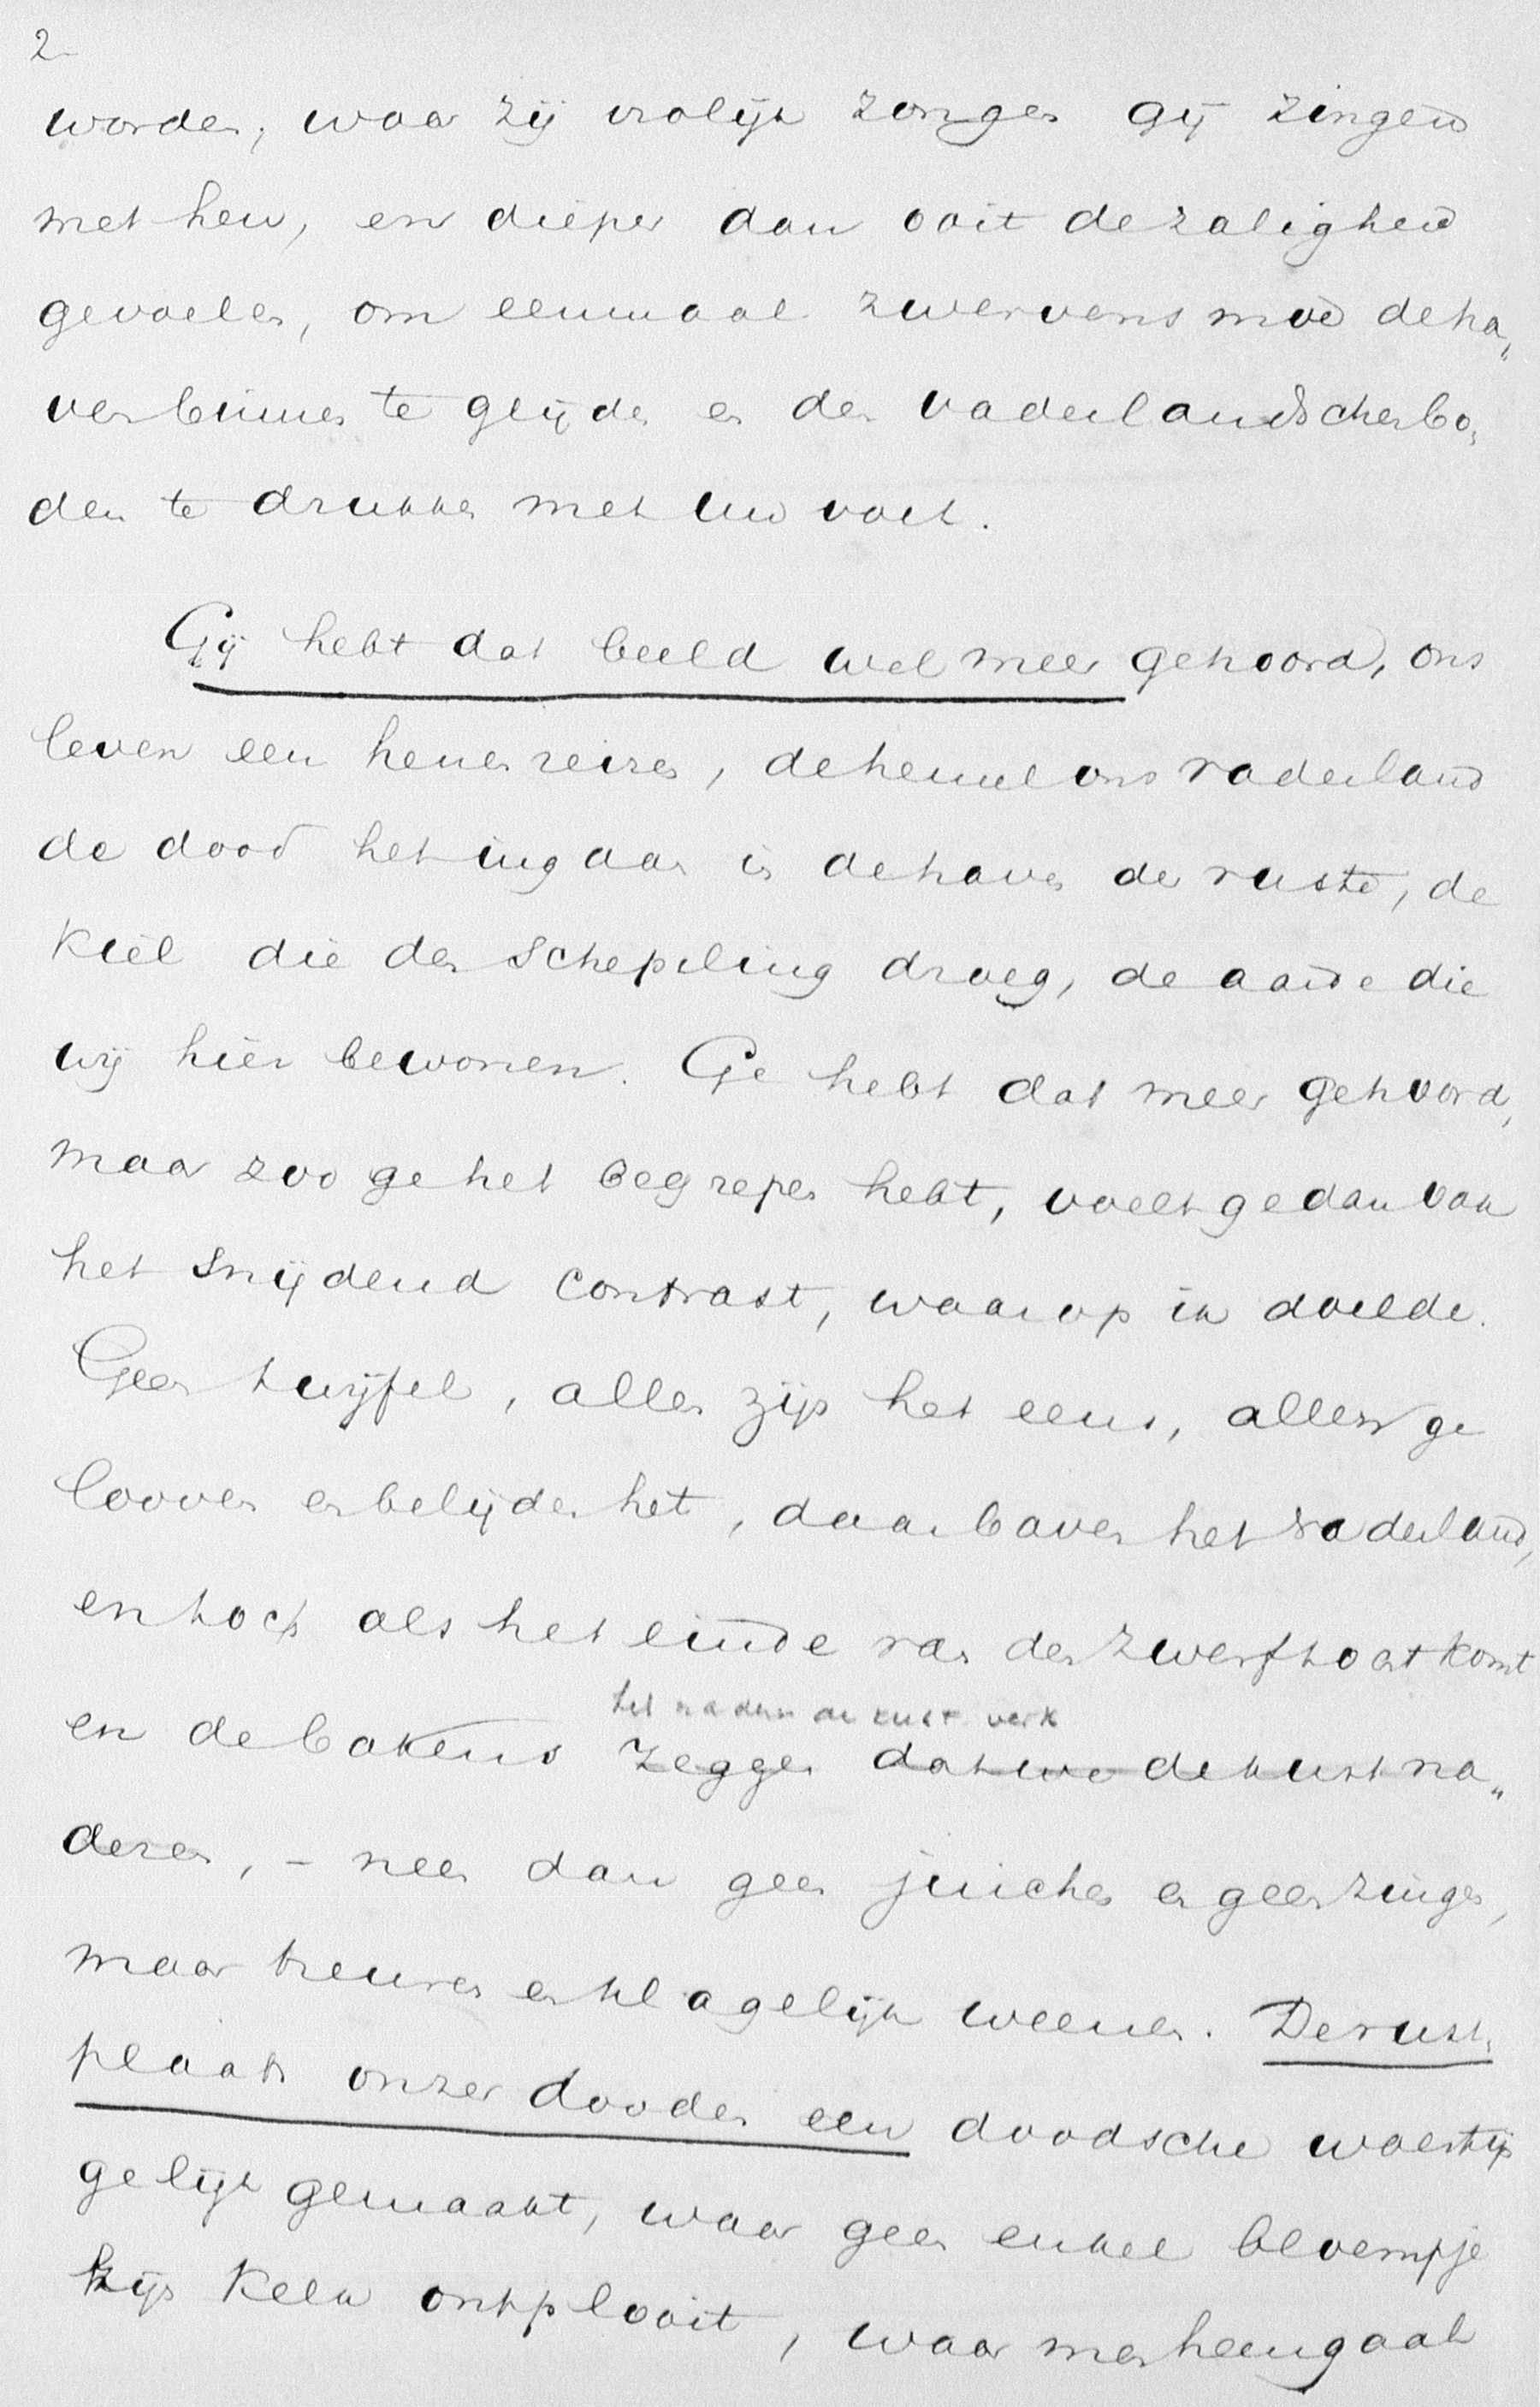 2
worden, waar zij vrolijk zongen gij zingen
met hen, en dieper dan ooit de zaligheid
gevoelen, om eenmaal zwervens moe de ha„
ven binnen te glijden en den vaderlandschen bo„
den te drukken met uw voet.
Gij hebt dat beeld wel meer gehoord, ons
leven een henen reizen, de hemel ons vaderland
de dood het ingaan in de haven der ruste, de
kiel die den schepeling droeg, de aarde die
wij hier bewonen. Ge hebt dat meer gehoord,
maar zoo ge het begrepen hebt, voelt ge dan ook
het snijdend contrast, waarop ik doelde.
Geen twijfel, allen zijn het eens, allen ge
looven en belijden het, daarboven het vaderland,
en toch als het einde van den zwerftocht komt
het naderen der kust verk
en de bakens zeggen dat we de kust na„
deren, – neen dan geen juichen en geen zingen,
maar treuren en klagelijk weenen. De rust„
plaats onzer dooden een doodsche woestijn
gelijk gemaakt, waar geen enkel bloempje
zijn kelk ontplooit, waar men heengaat